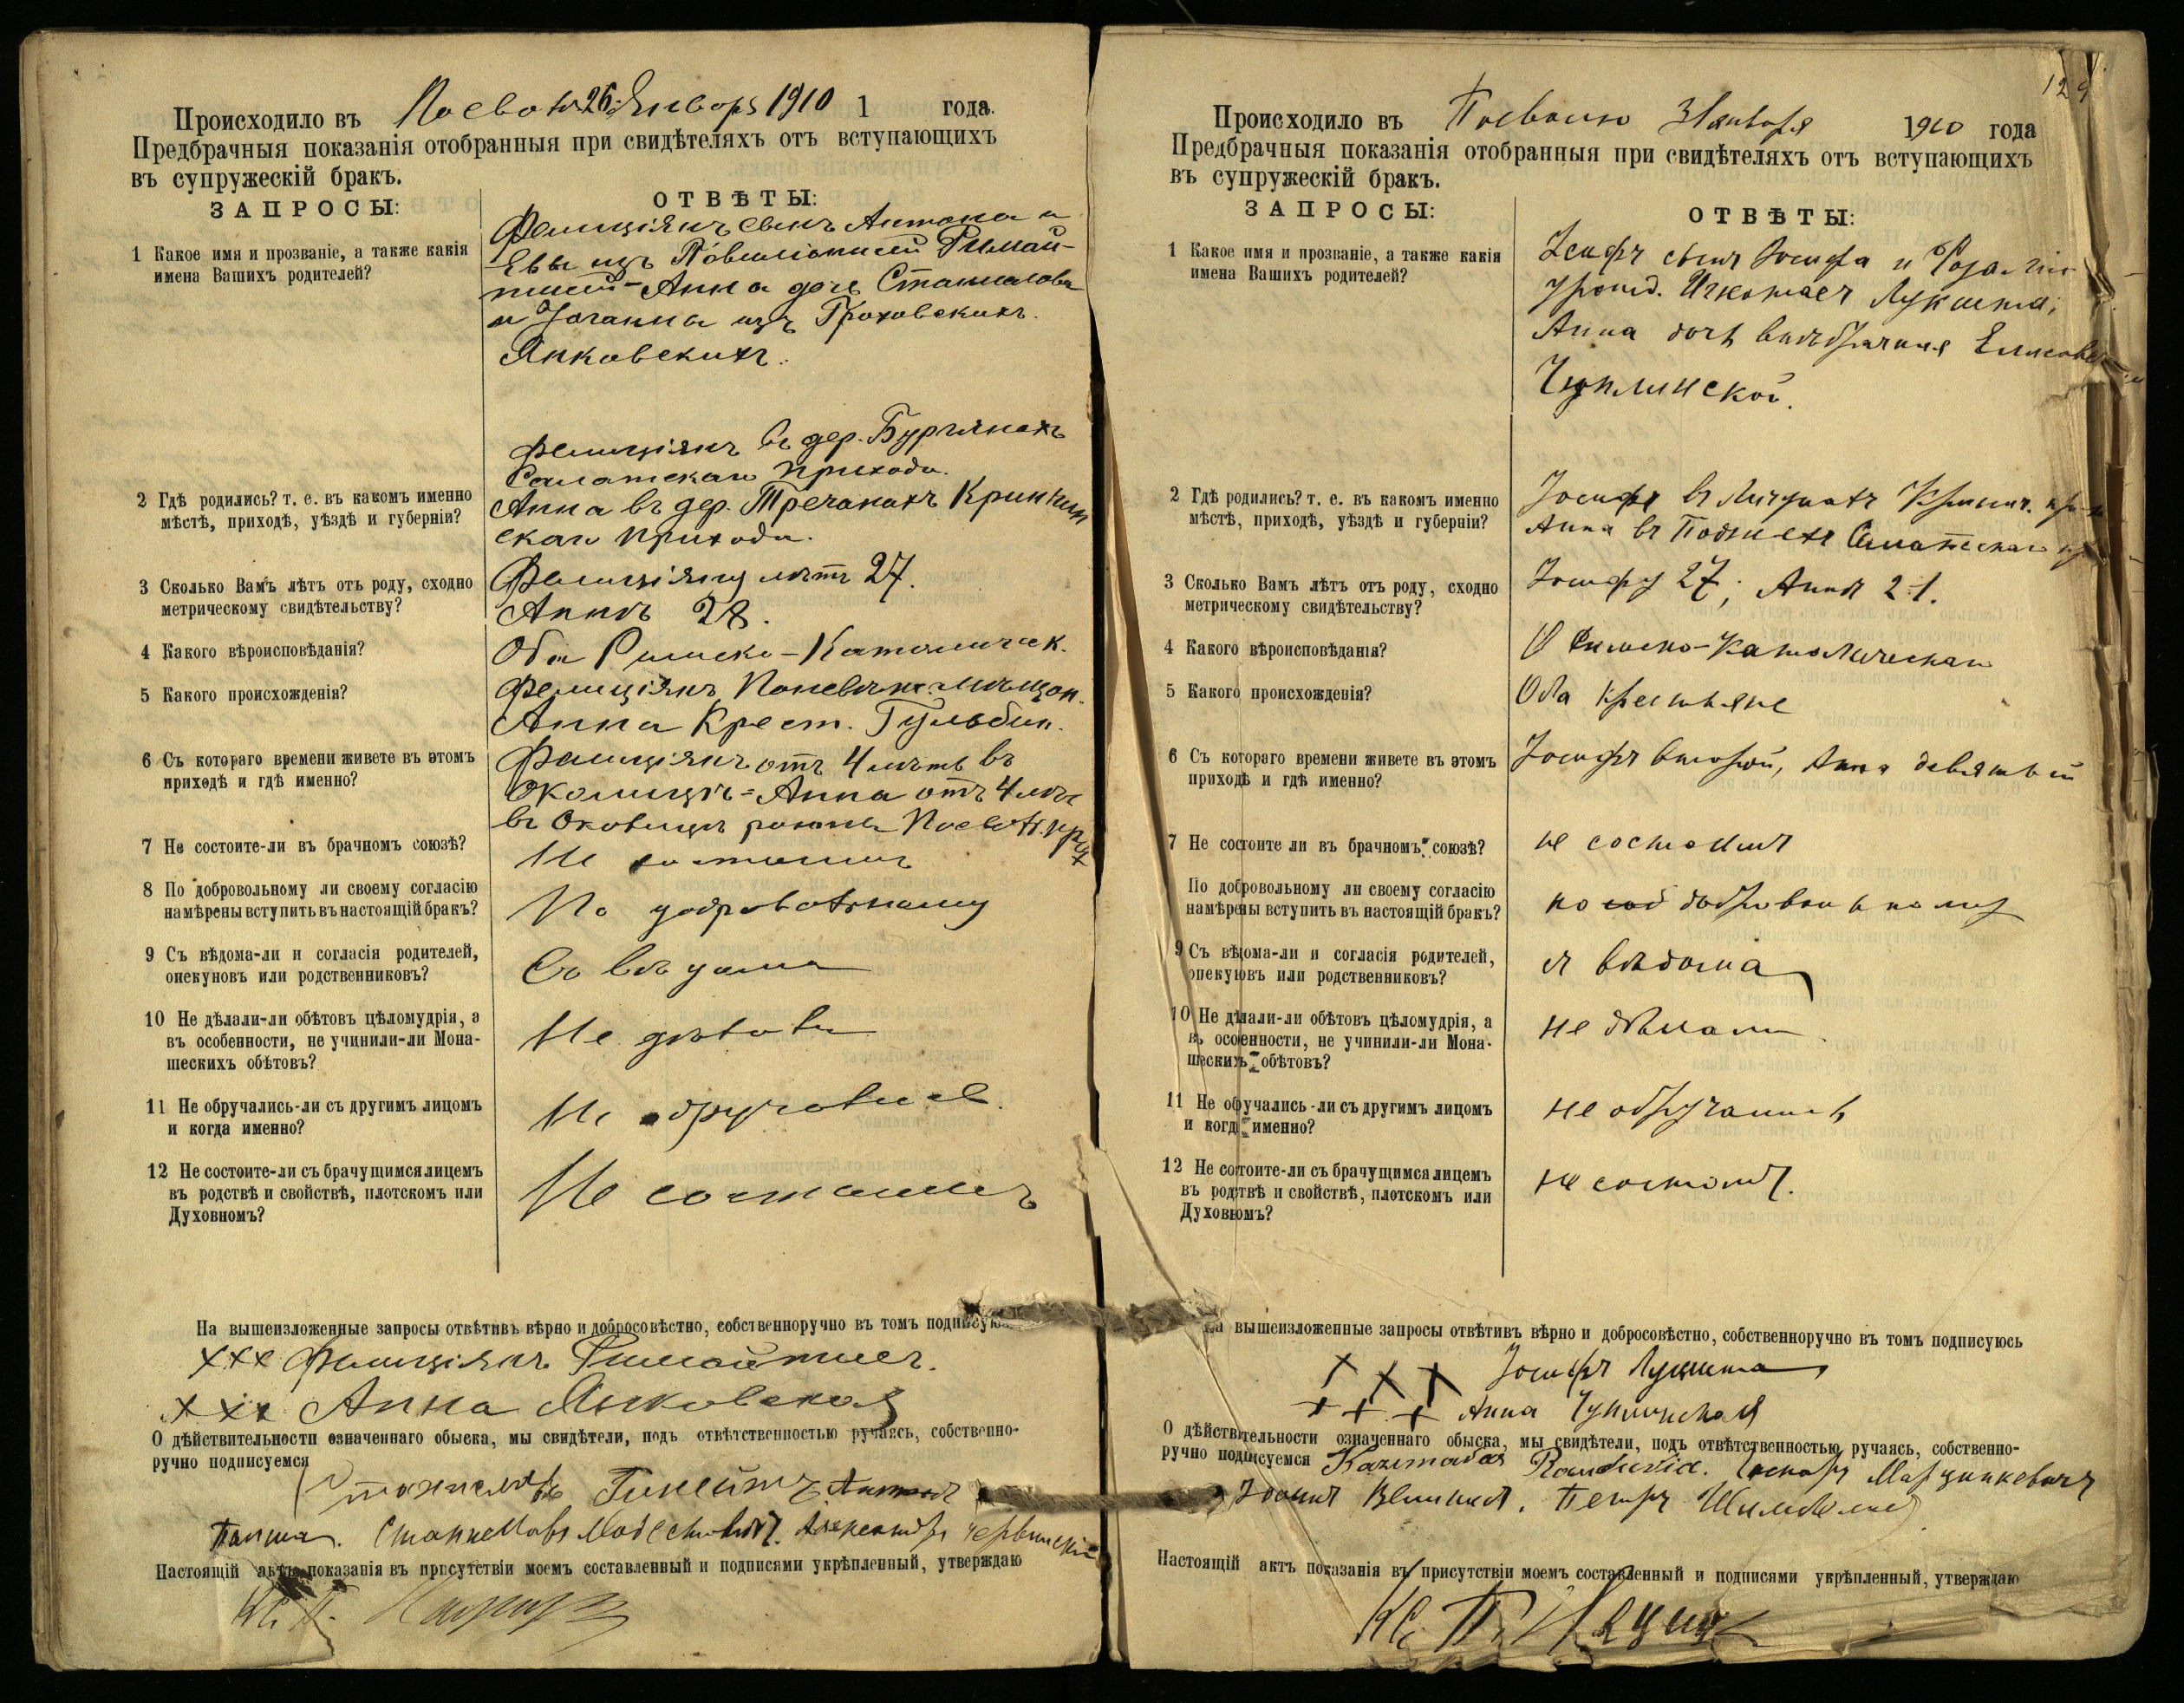 Происходило въ 26 Января 1910 1 года.
Предбрачныя показанія отобранныя при свидѣтеляхъ отъ вступающихъ
въ супружескій бракъ.
ЗАПРОСЫ:
ОТВѢТЫ:
1 Какое имя и прозваніе, а также какія
имена Вашихъ родителей?
Фелиціянъ сынъ Антона и
Евы изъ
Анна дочь Станислова
и Іоганны изъ Гроховскихъ
Янковскихъ.
2 Гдѣ родились? т. е. въ какомъ именно
мѣстѣ, приходѣ, уѣздѣ и губерніи?
Фелиціянъ въ дер.
Салатскаго прихода.
Анна въ дер. Тречанахъ Кринчин
скаго прихода.
3 Сколько Вамъ лѣтъ отъ роду, сходно
метрическому свидѣтельству?
Фелиціяну лѣтъ 27.
Аннѣ 28.
4 Какого вѣроисповѣданія?
Оба Римско-Католическ.
5 Какого происхожденія?
Фелиціянъ Поневѣж. мѣщан.
Анна Крест. Гульбин.
6 Съ котораго времени живете въ этомъ
приходѣ и гдѣ именно?
Фелиціянъ отъ 4 лѣтъ въ
Околицѣ = Анна отъ 4 лѣт
въ
7 Не состоите-ли въ брачномъ союзѣ?
Не состоимъ
8 По добровольному ли своему согласію
намѣрены вступить въ настоящій бракъ?
По добровольному
9 Съ вѣдома-ли и согласія родителей,
опекуновъ или родственниковъ?
Съ вѣдома
10 Не дѣлали-ли обѣтовъ цѣломудрія, а
въ особенности, не учинили-ли Мона-
шескихъ обѣтовъ?
Не дѣлали
11 Не обручались-ли съ другимъ лицомъ
и когда именно?
Не обручались.
12 Не состоите-ли съ брачущимся лицемъ
въ родствѣ и свойствѣ, плотскомъ или
Духовномъ?
Не состоимъ
На вышеизложенные запросы отвѣтивъ вѣрно и добросовѣстно, собственноручно въ томъ подписуюсь
ххх Фелиціянъ
ххх Анна Янковская
О дѣйствительности означеннаго обыска, мы свидѣтели, подъ отвѣтственностью ручаясь, собственно-
ручно подписуемся
Антонъ
Станиславъ Александръ
Настоящій актъ показанія въ присутствіи моемъ составленный и подписями укрѣпленный, утверждаю
129
Происходило въ Посволю Января 1910 года
Предбрачныя показанія отобранныя при свидѣтеляхъ отъ вступающихъ
въ супружескій бракъ.
ЗАПРОСЫ:
ОТВѢТЫ:
1 Какое имя и прозваніе, а также какія
имена Вашихъ родителей?
Іосифъ сынъ Іосифа и Розаліи
урожд.
Анна дочь внѣбрачная
Чуплинской.
2 Гдѣ родились? т. е. въ какомъ именно
мѣстѣ, приходѣ, уѣздѣ и губерніи?
Іосифъ въ
Анна въ
3 Сколько Вамъ лѣтъ отъ роду, сходно
метрическому свидѣтельству?
Іосифу 27; Аннѣ 21.
4 Какого вѣроисповѣданія?
Римско-Католическаго
5 Какого происхожденія?
Оба крестьяне
6 Съ котораго времени живете въ этомъ
приходѣ и гдѣ именно?
Іосифъ второй, Анна девятый
7 Не состоите ли въ брачномъ союзѣ?
не состоимъ
По добровольному ли своему согласію
намѣрены вступить въ настоящій бракъ?
по добровольному
9 Съ вѣдома-ли и согласія родителей,
опекуновъ или родственниковъ?
съ вѣдома
10 Не дѣлали-ли обѣтовъ цѣломудрія, а
въ особенности, не учинили-ли Мона-
шескихъ обѣтовъ?
не дѣлали
11 Не обручались-ли съ другимъ лицомъ
и когда именно?
не обручались
12 Не состоите-ли съ брачущимся лицемъ
въ родствѣ и свойствѣ, плотскомъ или
Духовномъ?
не состоимъ.
На вышеизложенные запросы отвѣтивъ вѣрно и добросовѣстно, собственноручно въ томъ подписуюсь
ххх Іосифъ
+++ Анна Чуплинская
О дѣйствительности означеннаго обыска, мы свидѣтели, подъ отвѣтственностью ручаясь, собственно-
ручно подписуемся Марцинкевичъ
Петръ
Настоящій актъ показанія въ присутствіи моемъ составленный и подписями укрѣпленный, утверждаю